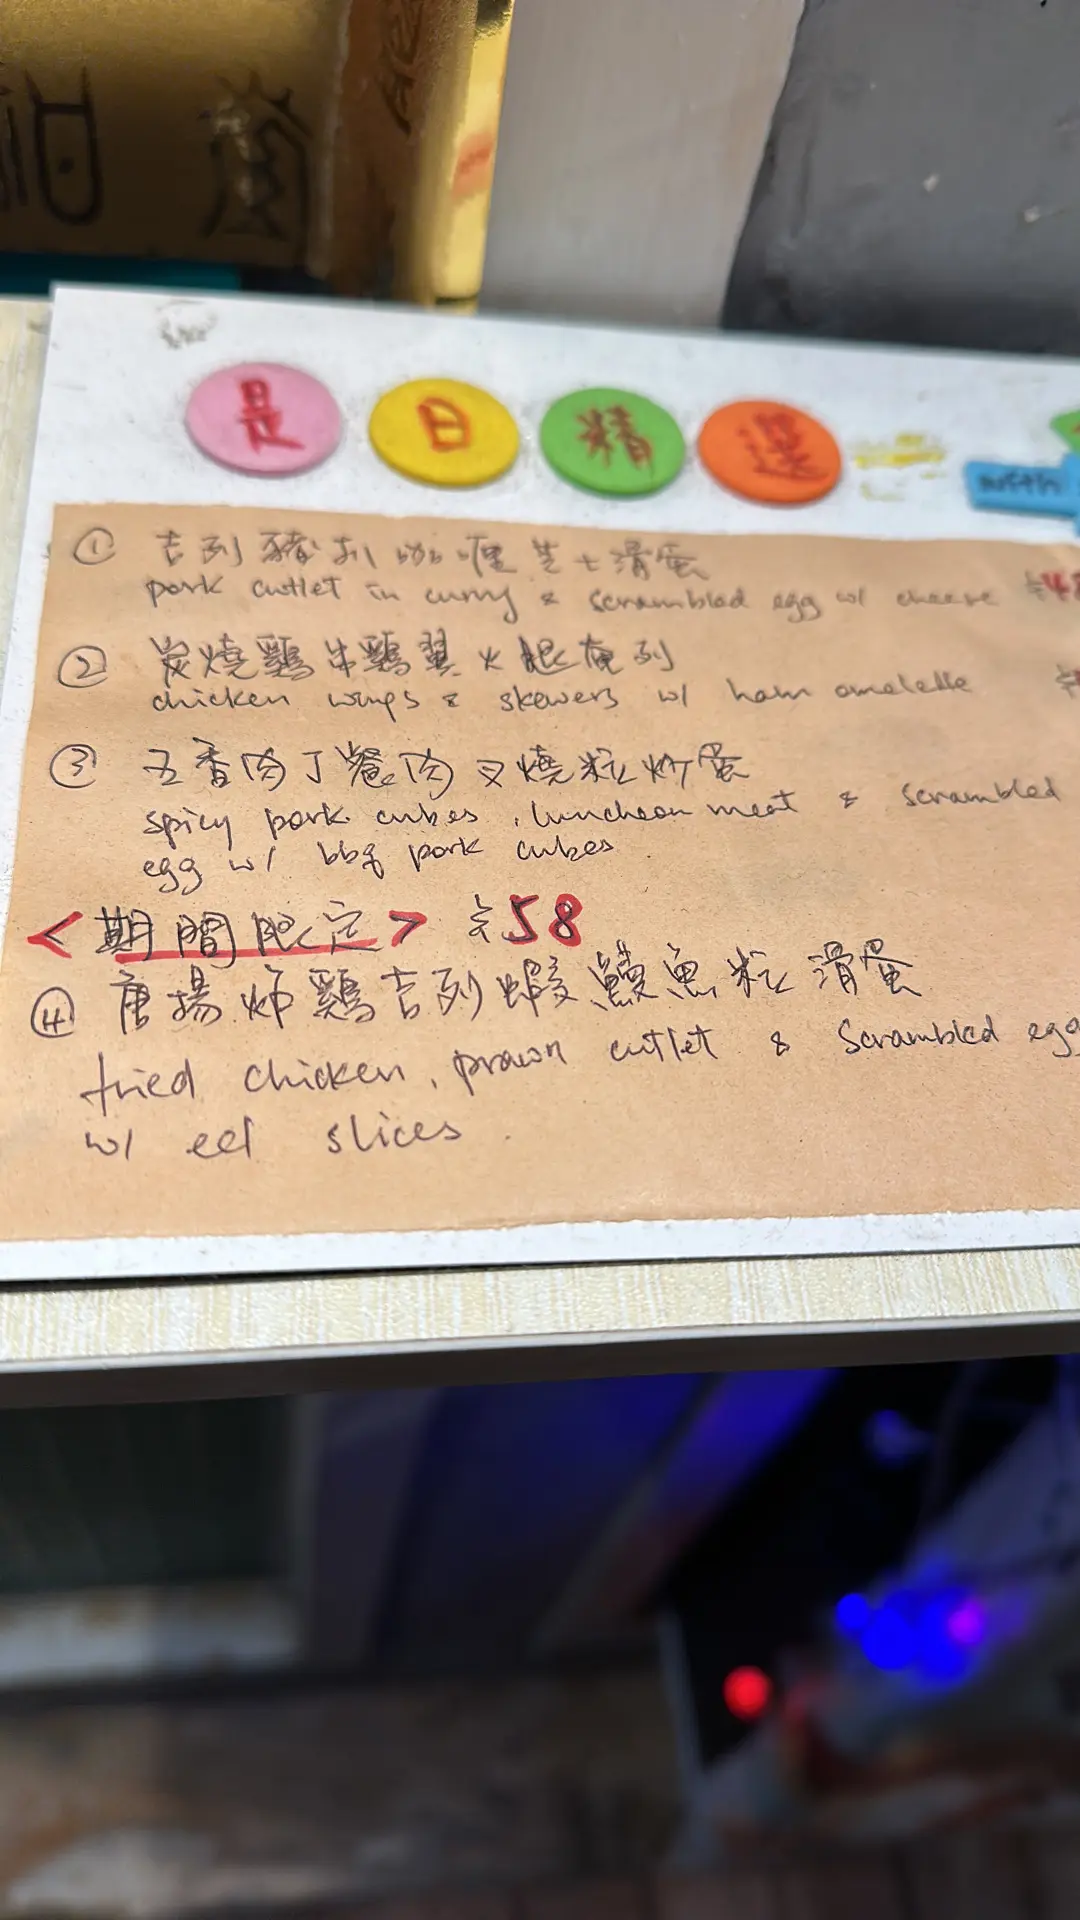 是日精選
with
① 吉列豬扒咖喱芝士滑蛋
pork cutlet in curry & scrambled egg w/ cheese
② 炭燒鷄串鷄翼火腿奄列
chicken wings & skewers w/ ham omelette
③ 五香肉丁餐肉叉燒粒炒蛋
spicy pork cubes, luncheon meat & scrambled
egg w/ bbq pork cubes
<期間限定> $58
④ 唐揚炸鷄吉列蝦鰻魚粒滑蛋
fried chicken, prawn cutlet & scrambled egg
w/ eel slices